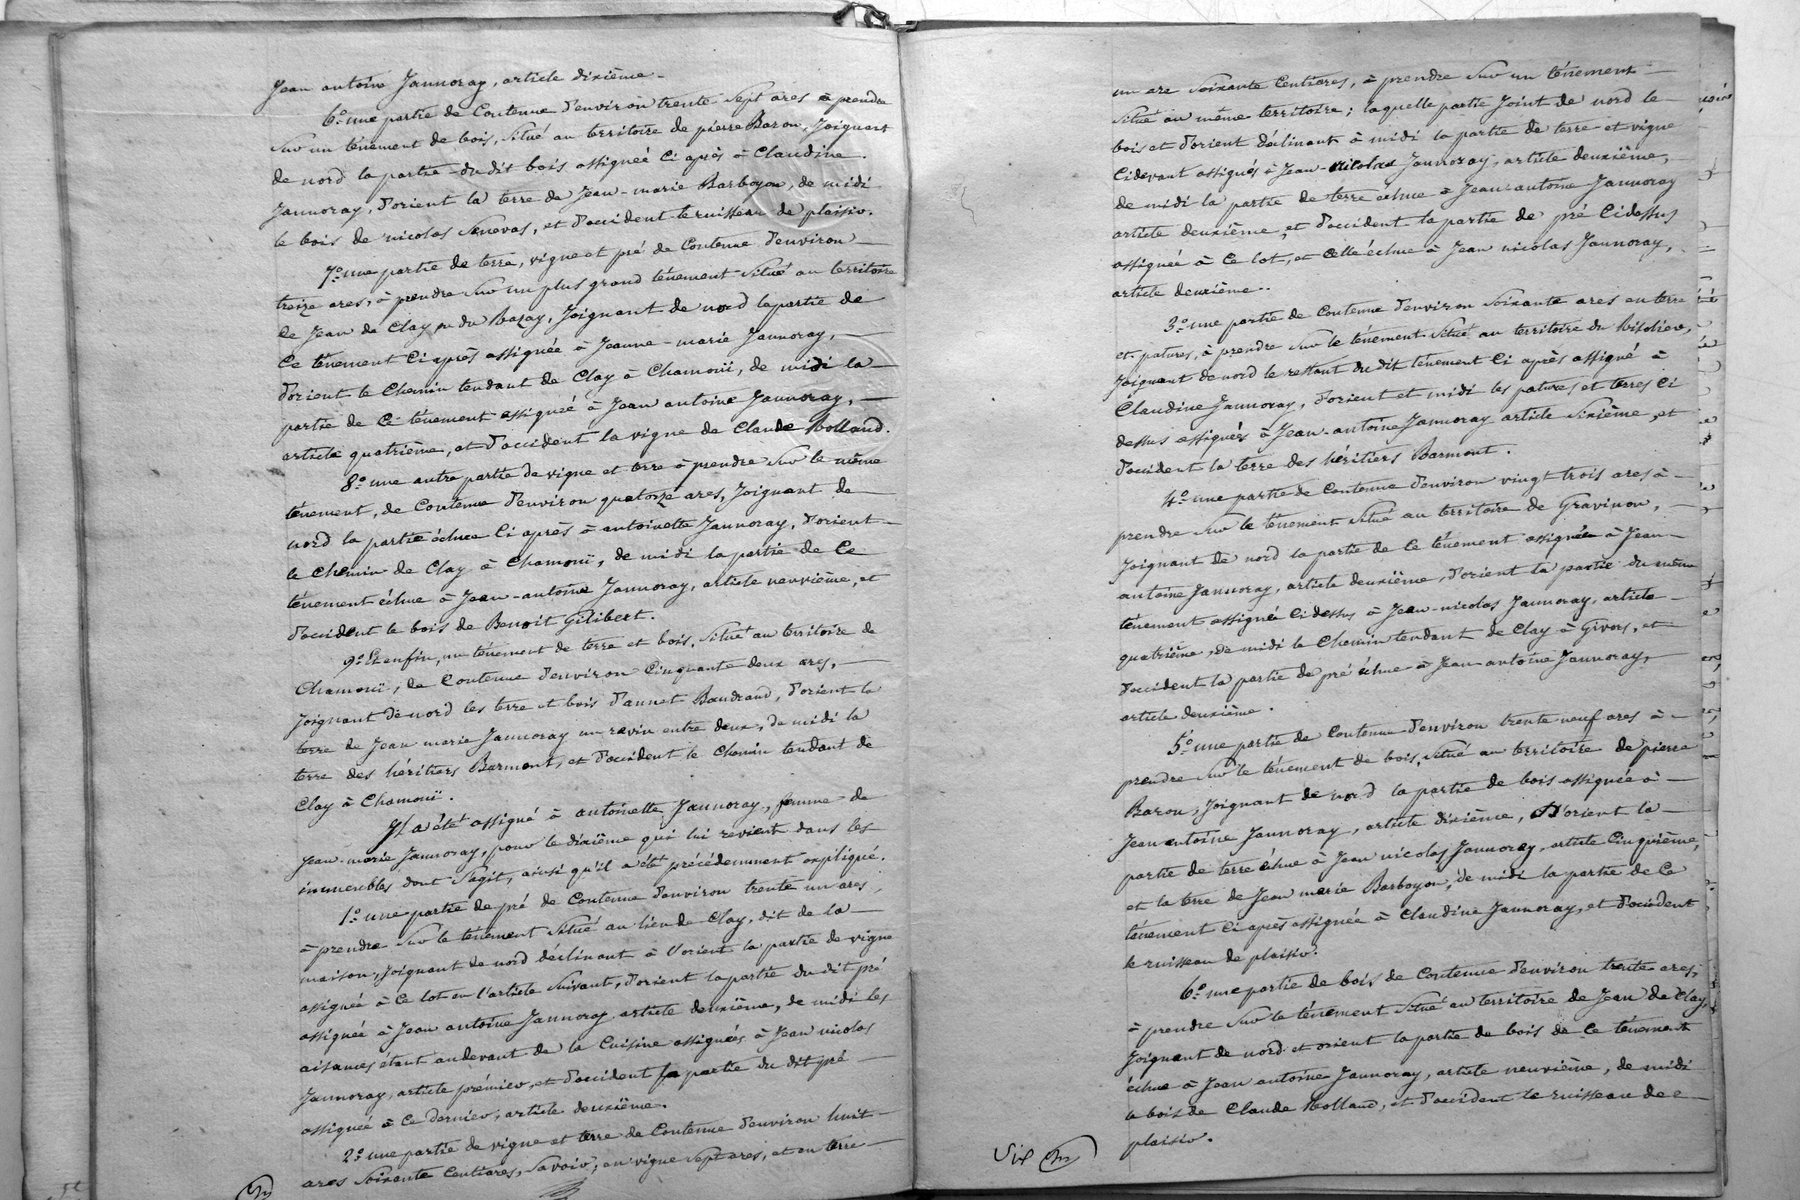 Jean antoine Jaunoray, article dixième.
6.° une partie de Contenue d'environ trente Sept ares à prendre
Sur un ténement de bois, Situé au territoire de pierre Baron, Joignant
de nord la partie du dit bois assignée Ci après à Claudine
Jaunoray, d'orient la terre de Jean-marie Barboyon, de midi
le bois de nicolas Senevas, et d'occident le ruisseau de plaisir.
7.° une partie de terre, vigne et pré de Contenue d'environ
treize ares, à prendre Sur un plus grand ténement Situé au territoire
de Jean de Clay ou du Razay, Joignant de nord la partie de
Ce ténement Ci après assignée à Jeanne-marie Jaunoray,
d'orient le Chemin tendant de Clay à Chamoüi, de midi la
partie de Ce ténement assignée à Jean antoine Jaunoray,
article quatrième, et d'occident la vigne de Claude Rolland.
8.° une autre partie de vigne et terre à prendre Sur le même
ténement, de Contenue d'environ quatorze ares, Joignant de
nord la partie échue Ci après à antoinette Jaunoray, d'orient
le Chemin de Clay à Chamoüi, de midi la partie de Ce
ténement échue à Jean-antoine Jaunoray, article neuvième, et
d'occident le bois de Benoit Gilibert.
9.° Et enfin, un ténement de terre et bois, Situé au territoire de
Chamoüi, de Contenue d'environ Cinquante deux ares,
Joignant de nord les terre et bois d'annet Baudrand, d'orient la
terre de Jean marie Jaunoray un ravin entre deux, de midi la
terre des héritiers Barmont, et d'occident le Chemin tendant de
Clay à Chamoüi.
Il a été assigné à antoinette Jaunoray, femme de
Jean-marie Jaunoray, pour le dixième qui lui revient dans les
immeubles dont S'agit, ainsi qu'il a été précédemment expliqué.
1.° une partie de pré de Contenue d'environ trente un ares,
à prendre Sur le ténement Situé au lieu de Clay, dit de la
maison, Joignant de nord déclinant à l'orient la partie de vigne
assignée à Ce lot en l'article Suivant, d'orient la partie du dit pré
assignée à Jean antoine Jaunoray article deuxième, de midi les
aisances étant au devant de la Cuisine assignées à Jean nicolas
Jaunoray, article prémier, et d'occident la partie du dit pré
assignée à Ce dernier, article deuxième.
2.° une partie de vigne et terre de Contenue d'environ huit
ares Soixante Centiares, Savoir; en vigne Sept ares, et en terre
un are Soixante Centiares, à prendre Sur un ténement
Situé au même territoire; laquelle partie Joint de nord le
bois et d'orient déclinant à midi la partie de terre et vigne
Cidevant assignés à Jean-nicolas Jaunoray, article deuxième,
de midi la partie de terre échue à Jean-antoine Jaunoray
article deuxième, et d'occident la partie de pré Cidessus
assignée à Ce lot, et celle échue à Jean nicolas Jaunoray,
article deuxième.
3.° une partie de Contenue d'environ Soixante ares en terre
et patures, à prendre Sur le ténement Situé au territoire du
Joignant de nord le restant du dit ténement Ci après assigné à
Claudine Jaunoray, d'orient et midi les patures et terres Ci
dessus assignées à Jean-antoine Jaunoray article Sixième, et
d'occident la terre des héritiers Barmont.
4.° une partie de Contenue d'environ vingt trois ares à
prendre Sur le ténement Situé au territoire de Gravinon,
Joignant de nord la partie de Ce ténement assignée à Jean
antoine Jaunoray, article deuxième, d'orient la partie du même
ténement assignée Cidessus à Jean-nicolas Jaunoray, article
quatrième, de midi le Chemin tendant de Clay à Givors, et
d'occident la partie de pré échue à Jean antoine Jaunoray,
article deuxième.
5.° une partie de Contenue d'environ trente neuf ares à
prendre Sur le ténement de bois, Situé au territoire de pierre
Baron, Joignant de nord la partie de bois assignée à
Jean antoine Jaunoray, article dixième, d'orient la
partie de terre échue à Jean nicolas Jaunoray, article Cinquième,
et la terre de Jean marie Barboyon, de midi la partie de Ce
ténement Ci après assignée à Claudine Jaunoray, et d'occident
le ruisseau de plaisir.
6.° une partie de bois de Contenue d'environ trente ares,
à prendre Sur le ténement Situé au territoire de Jean de Clay,
Joignant de nord et orient la partie de bois de Ce ténement
échue à Jean antoine Jaunoray, article neuvième, de midi
le bois de Claude Rolland, et d'occident le ruisseau de
plaisir.
Six